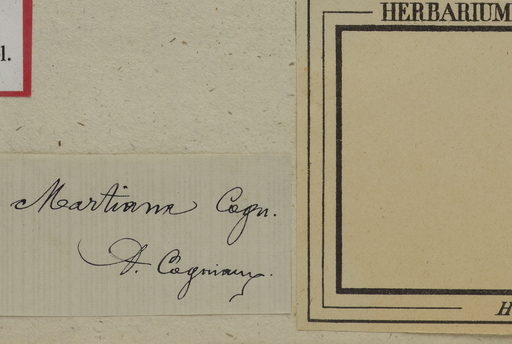 HERBARIUM
l.
Martiana Cogn.
A. Cogniaux.
H